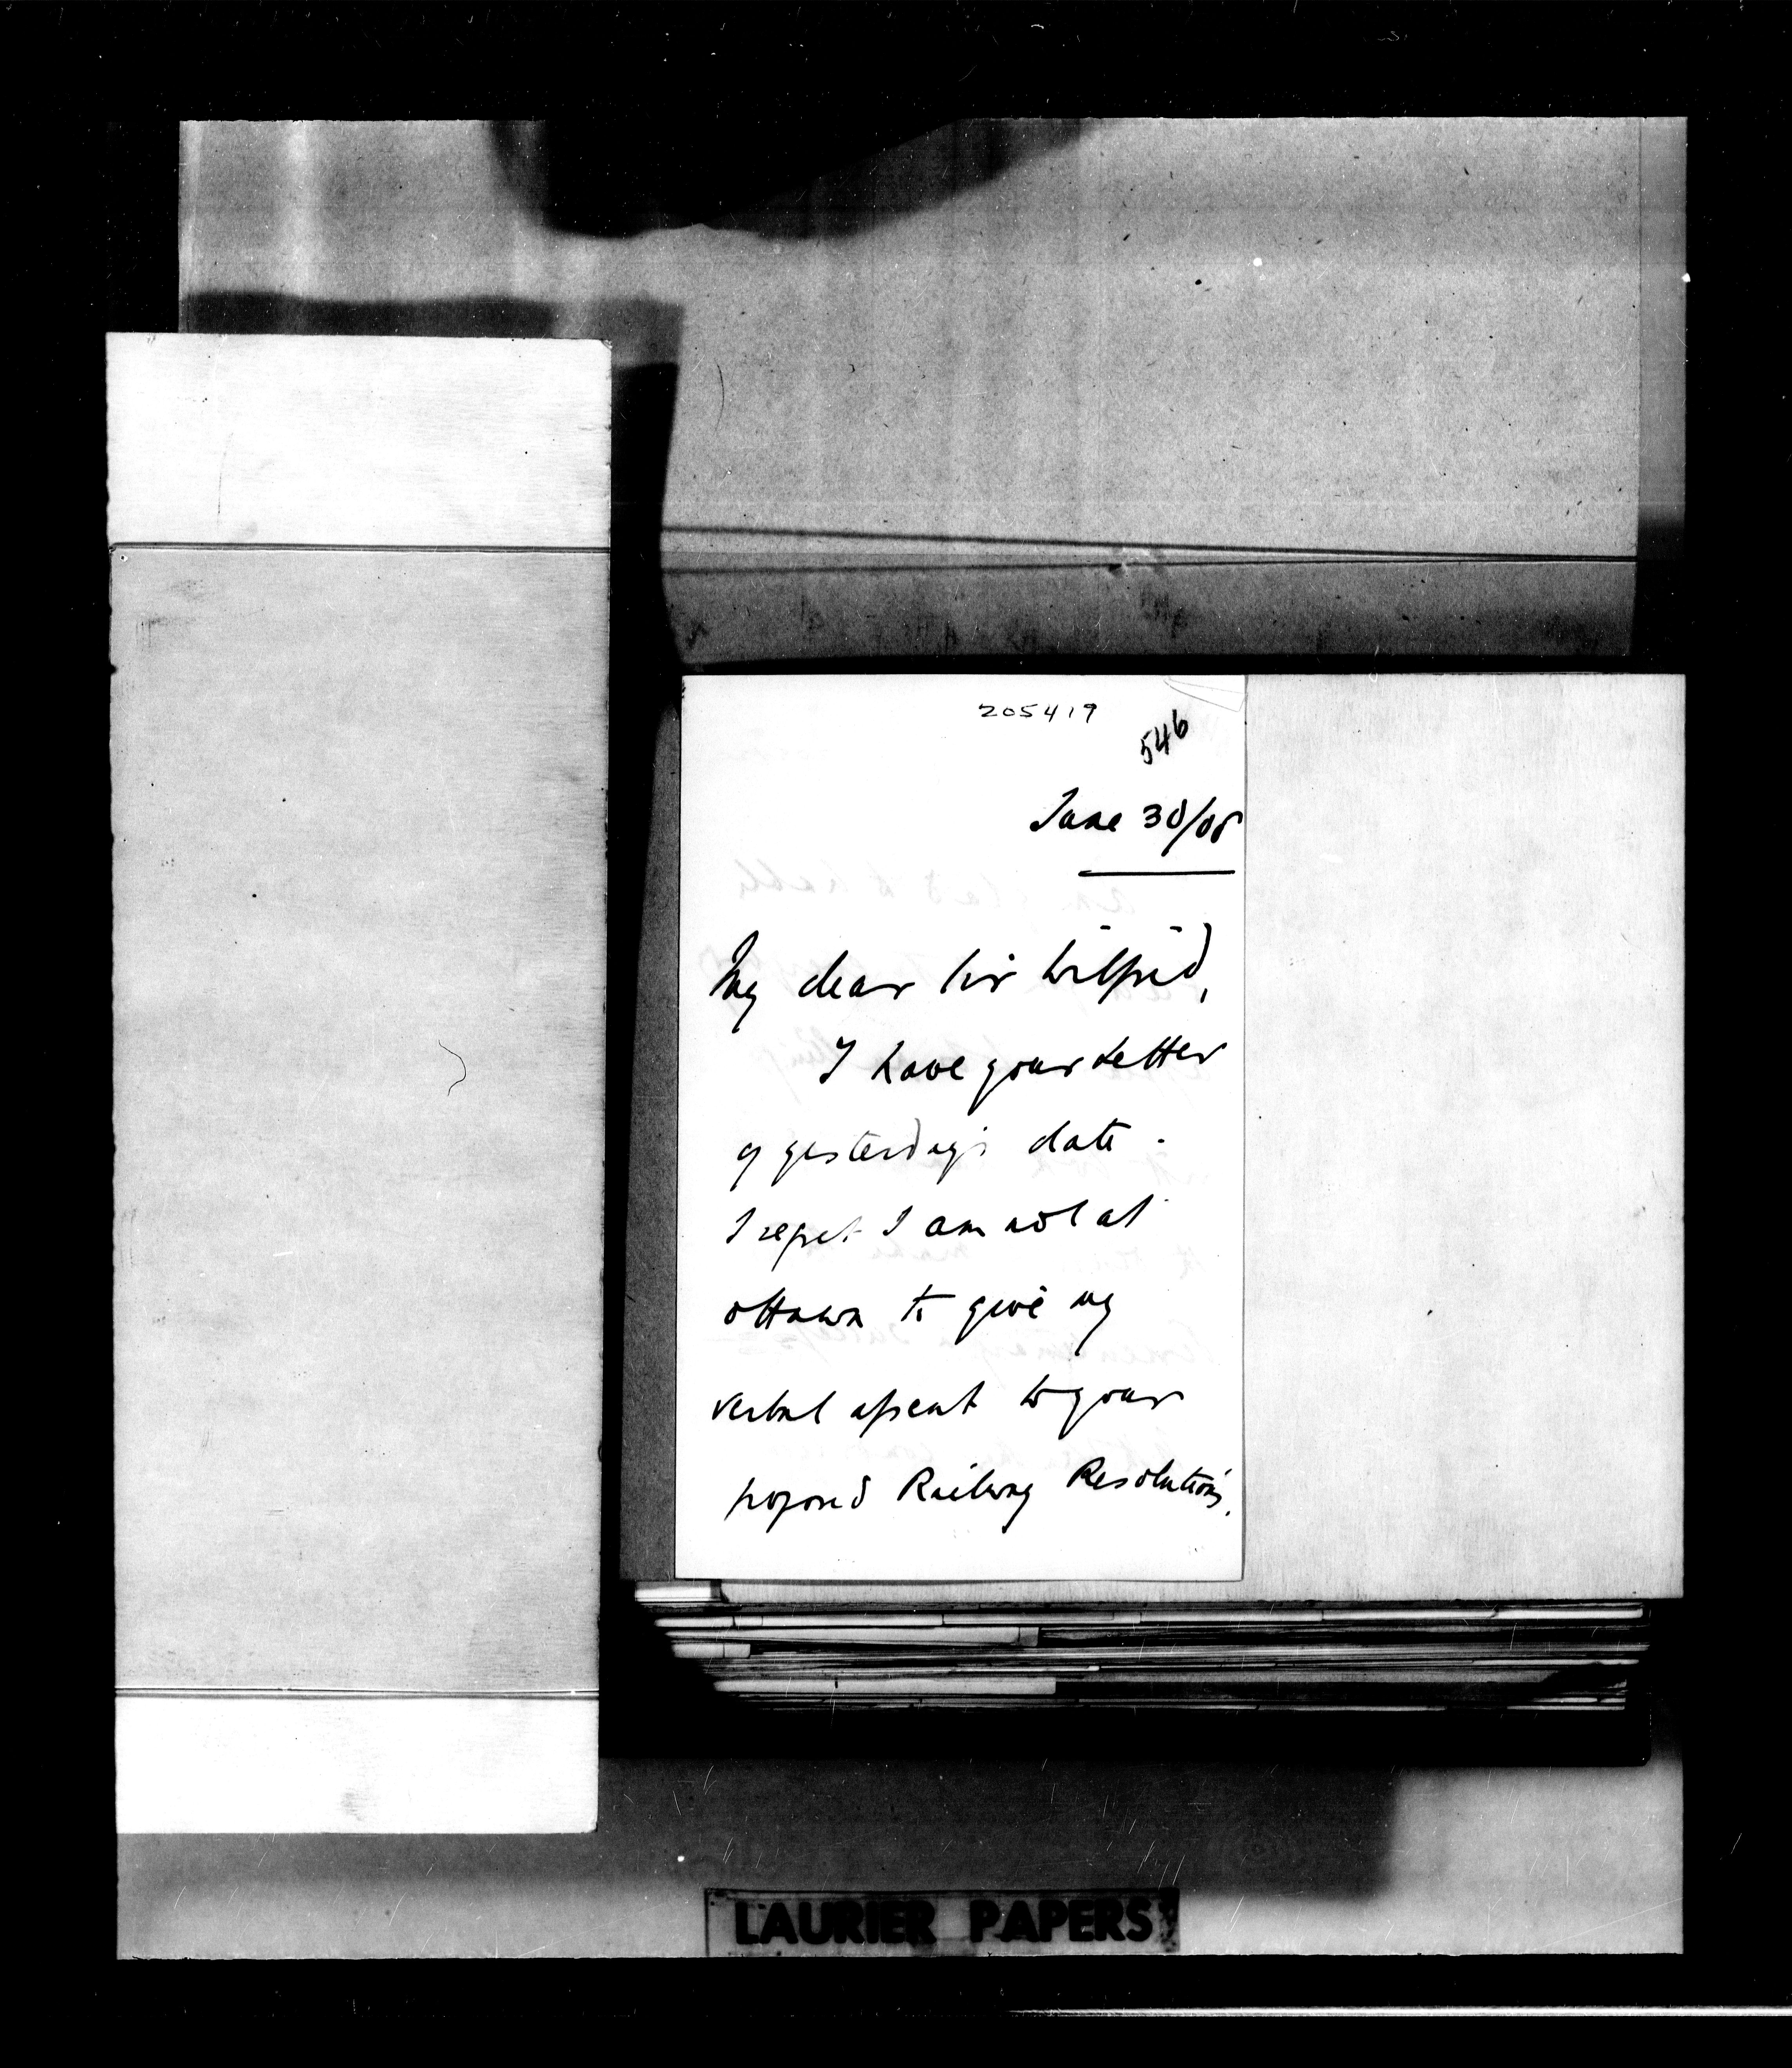 205419
546
June 30/08
My dear Sir Wilfrid,
I have your letter
of yesterday's date.
I regret I am not at
Ottawa to give my
verbal assent to your
proposed Railway Resolutions.
LAURIER PAPERS